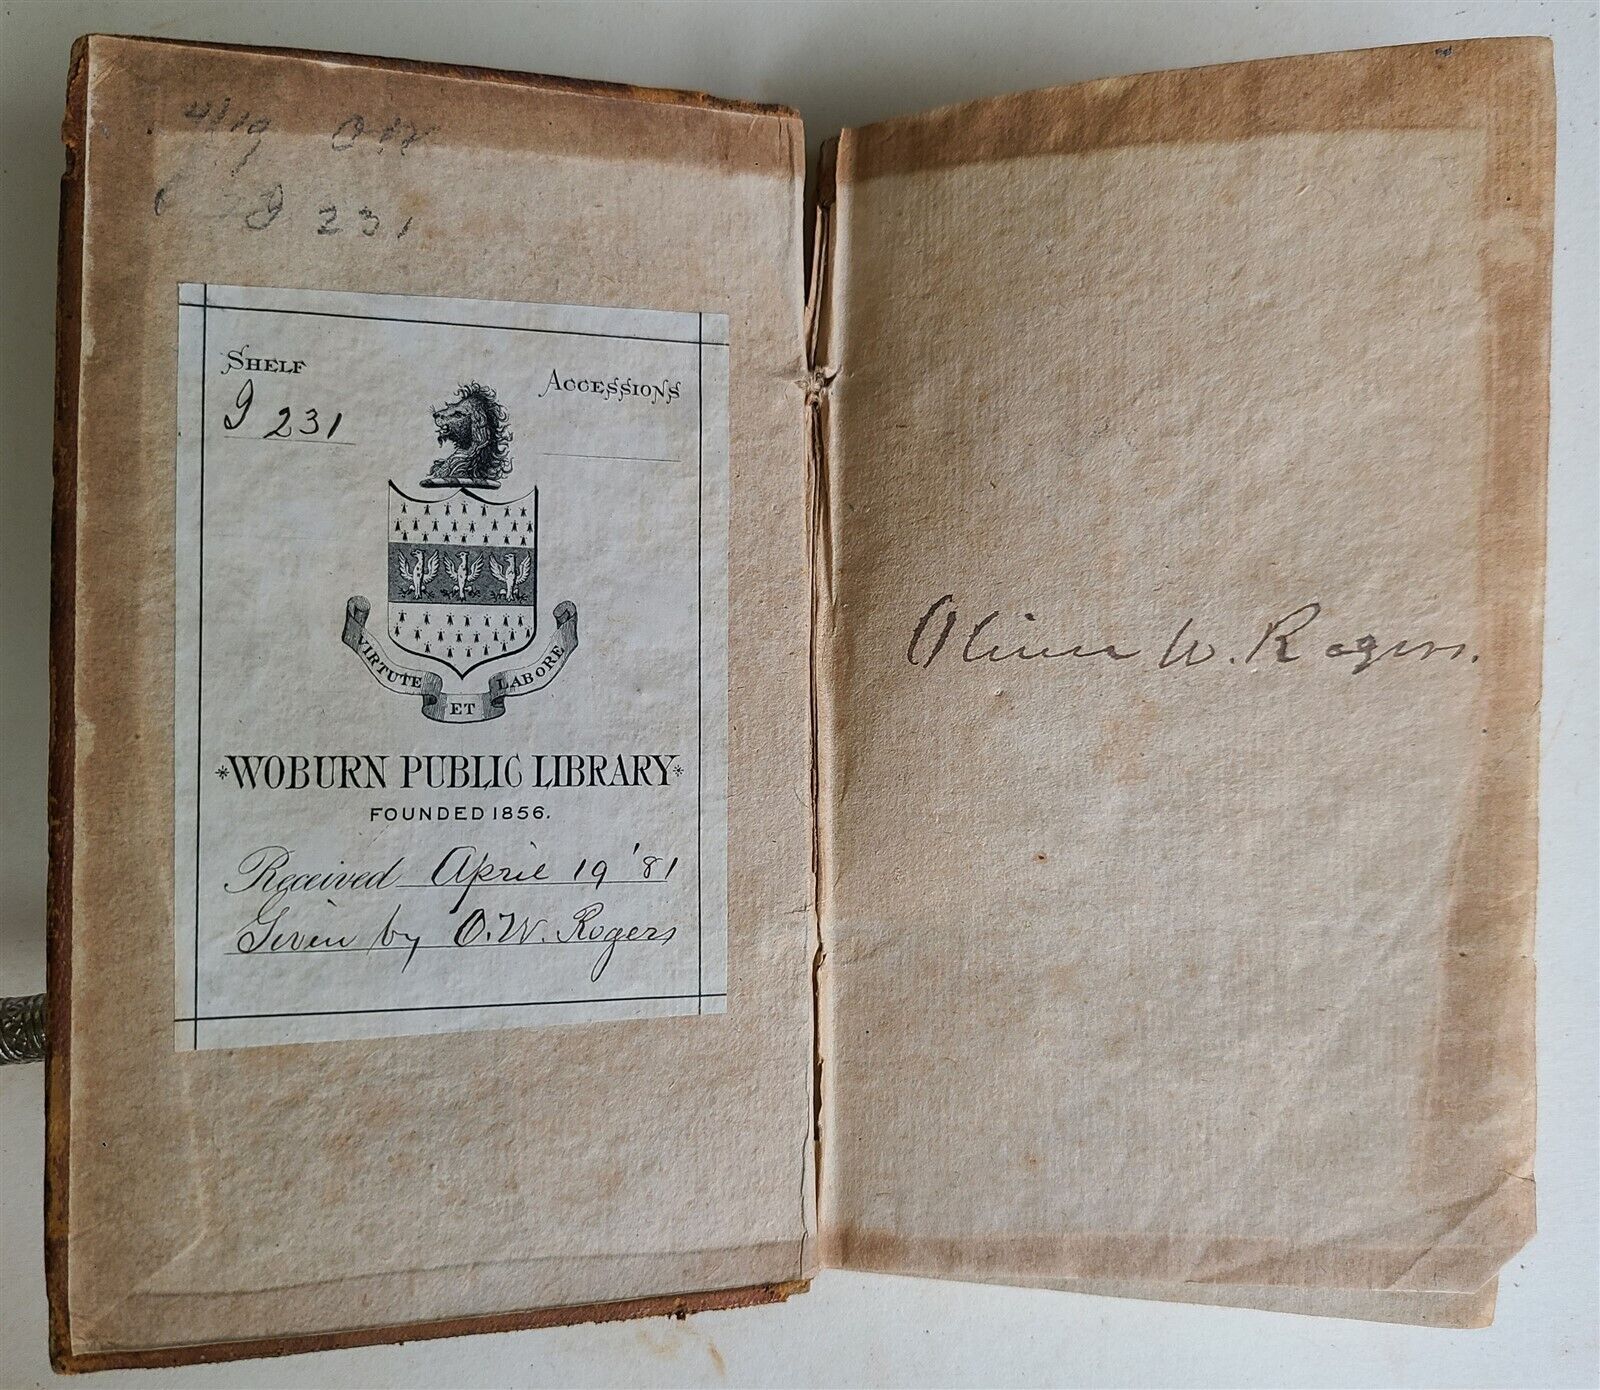 4/19 O.W.
231
SHELF
ACCESSIONS
I 231
VIRTUTE ET LABORE
*WOBURN PUBLIC LIBRARY*
FOUNDED 1856.
Received April 19 '81
Given by O.W. Rogers
Oliver W. Rogers.